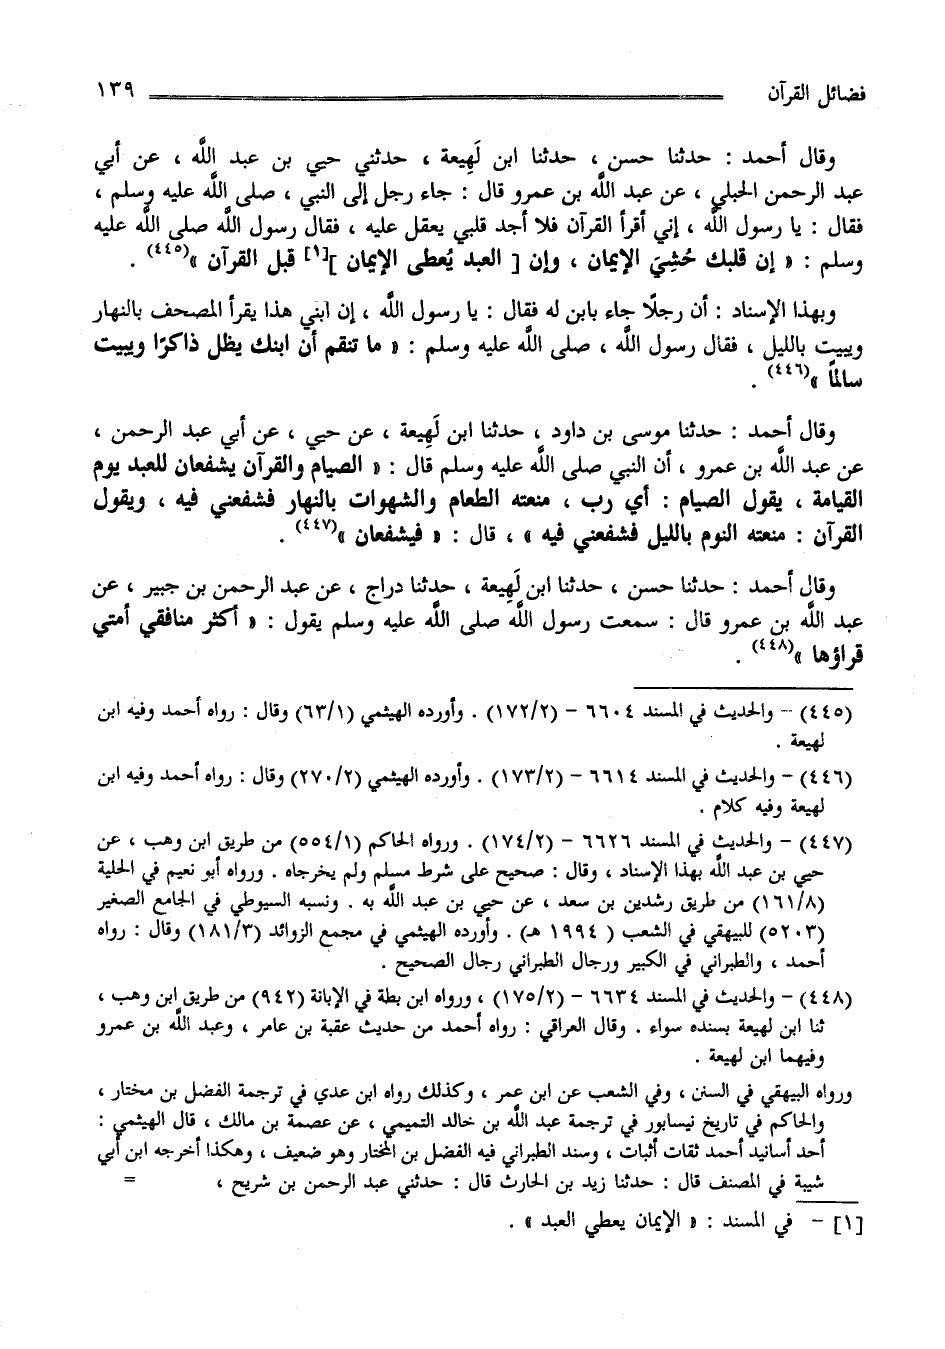 فضائل القرآن ١٣٩
وقال أحمد : حدثنا حسن ، حدثنا ابن لَهِيعة ، حدثني حيي بن عبد اللَّه ، عن أبي
عبد الرحمن الحبلي ، عن عبد اللَّه بن عمرو قال : جاء رجل إلى النبي ، صلى اللَّه عليه وسلم ،
فقال : يا رسول اللَّه ، إني أقرأ القرآن فلا أجد قلبي يعقل عليه ، فقال رسول اللَّه صلى اللَّه عليه
وسلم : « إن قلبك حُشِيَ الإيمان ، وإن [ العبد يُعطى الإيمان ][١] قبل القرآن »(٤٤٥) .
وبهذا الإسناد : أن رجلًا جاء بابن له فقال : يا رسول اللَّه ، إن ابني هذا يقرأ المصحف بالنهار
ويبيت بالليل ، فقال رسول اللَّه ، صلى اللَّه عليه وسلم : « ما تنقم أن ابنك يظل ذاكرًا ويبيت
سالمًا »(٤٤٦) .
وقال أحمد : حدثنا موسى بن داود ، حدثنا ابن لَهِيعة ، عن حيي ، عن أبي عبد الرحمن ،
عن عبد اللَّه بن عمرو ، أن النبي صلى اللَّه عليه وسلم قال : « الصيام والقرآن يشفعان للعبد يوم
القيامة ، يقول الصيام : أي رب ، منعته الطعام والشهوات بالنهار فشفعني فيه ، ويقول
القرآن : منعته النوم بالليل فشفعني فيه » ، قال : « فيشفعان »(٤٤٧) .
وقال أحمد : حدثنا حسن ، حدثنا ابن لَهِيعة ، حدثنا دراج ، عن عبد الرحمن بن جبير ، عن
عبد اللَّه بن عمرو قال : سمعت رسول اللَّه صلى اللَّه عليه وسلم يقول : « أكثر منافقي أمتي
قراؤها »(٤٤٨) .
(٤٤٥) - والحديث في المسند ٦٦٠٤ - (١٧٢/٢) . وأورده الهيثمي (٦٣/١) وقال : رواه أحمد وفيه ابن
لهيعة .
(٤٤٦) - والحديث في المسند ٦٦١٤ - (١٧٣/٢) . وأورده الهيثمي (٢٧٠/٢) وقال : رواه أحمد وفيه ابن
لهيعة وفيه كلام .
(٤٤٧) - والحديث في المسند ٦٦٢٦ - (١٧٤/٢) . ورواه الحاكم (٥٥٤/١) من طريق ابن وهب ، عن
حيي بن عبد اللَّه بهذا الإسناد ، وقال : صحيح على شرط مسلم ولم يخرجاه . ورواه أبو نعيم في الحلية
(١٦١/٨) من طريق رشدين بن سعد ، عن حيي بن عبد اللَّه به . ونسبه السيوطي في الجامع الصغير
(٥٢٠٣) للبيهقي في الشعب ( ١٩٩٤ هـ) . وأورده الهيثمي في مجمع الزوائد (١٨١/٣) وقال : رواه
أحمد ، والطبراني في الكبير ورجال الطبراني رجال الصحيح .
(٤٤٨) - والحديث في المسند ٦٦٣٤ - (١٧٥/٢) ، ورواه ابن بطة في الإبانة (٩٤٢) من طريق ابن وهب ،
ثنا ابن لهيعة بسنده سواء . وقال العراقي : رواه أحمد من حديث عقبة بن عامر ، وعبد اللَّه بن عمرو
وفيهما ابن لهيعة .
ورواه البيهقي في السنن ، وفي الشعب عن ابن عمر ، وكذلك رواه ابن عدي في ترجمة الفضل بن مختار ،
والحاكم في تاريخ نيسابور في ترجمة عبد اللَّه بن خالد التميمي ، عن عصمة بن مالك ، قال الهيثمي :
أحد أسانيد أحمد ثقات أثبات ، وسند الطبراني فيه الفضل بن المختار وهو ضعيف ، وهكذا أخرجه ابن أبي
شيبة في المصنف قال : حدثنا زيد بن الحارث قال : حدثني عبد الرحمن بن شريح ، =
[١] - في المسند : « الإيمان يعطي العبد » .